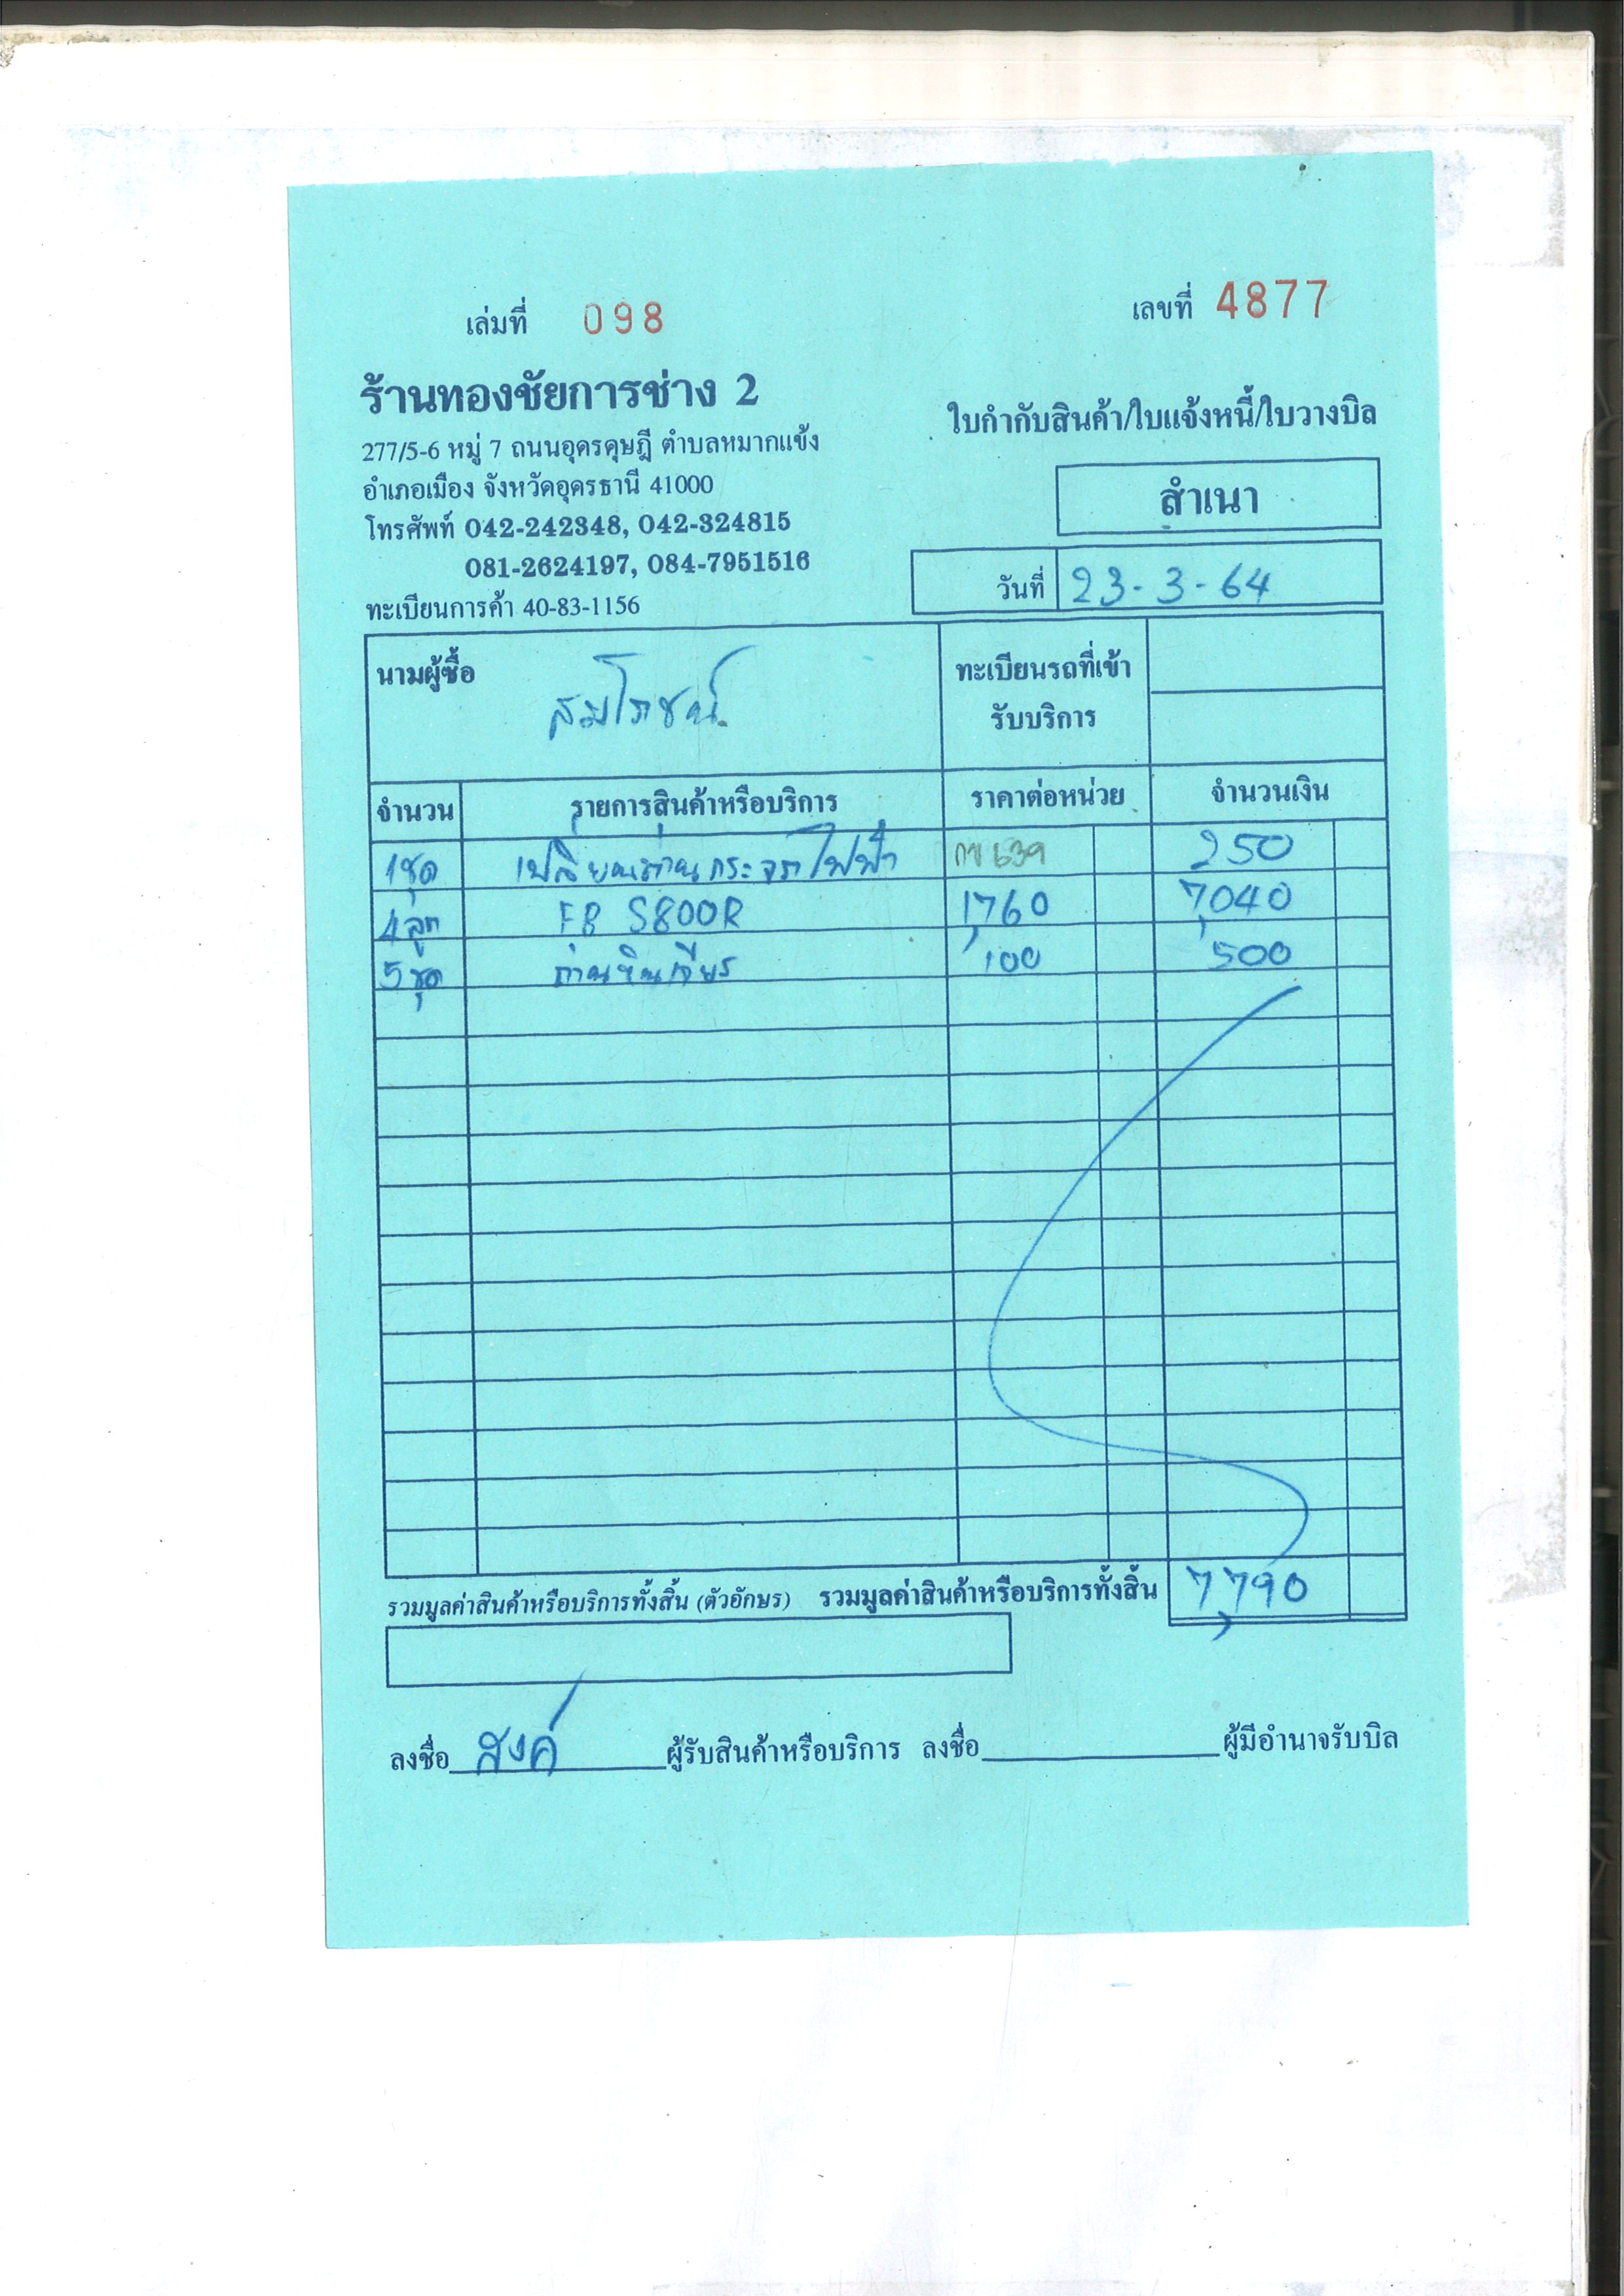 เล่มที่ 098
เลขที่ 4877
ร้านทองชัยการช่าง 2
ใบกำกับสินค้า/ใบแจ้งหนี้/ใบวางบิล
277/5-6 หมู่ 7 ถนนอุดรดุษฎี ตำบลหมากแข้ง
อำเภอเมือง จังหวัดอุดรธานี 41000
สำเนา
โทรศัพท์ 042-242348, 042-324815
081-2624197, 084-7951516
วันที่ 23-3-64
ทะเบียนการค้า 40-83-1156
นามผู้ซื้อ สมโภชน์
ทะเบียนรถที่เข้า
รับบริการ
จำนวน รายการสินค้าหรือบริการ ราคาต่อหน่วย จำนวนเงิน
1ชุด เปลี่ยนถ่านกระจกไฟฟ้า 639 250
4ลูก FB S800R 1,760 7,040
5ชุด ถ่านหินเจียร 100 500
รวมมูลค่าสินค้าหรือบริการทั้งสิ้น (ตัวอักษร) รวมมูลค่าสินค้าหรือบริการทั้งสิ้น 7,790
ลงชื่อ สงค์ ผู้รับสินค้าหรือบริการ ลงชื่อ ผู้มีอำนาจรับบิล